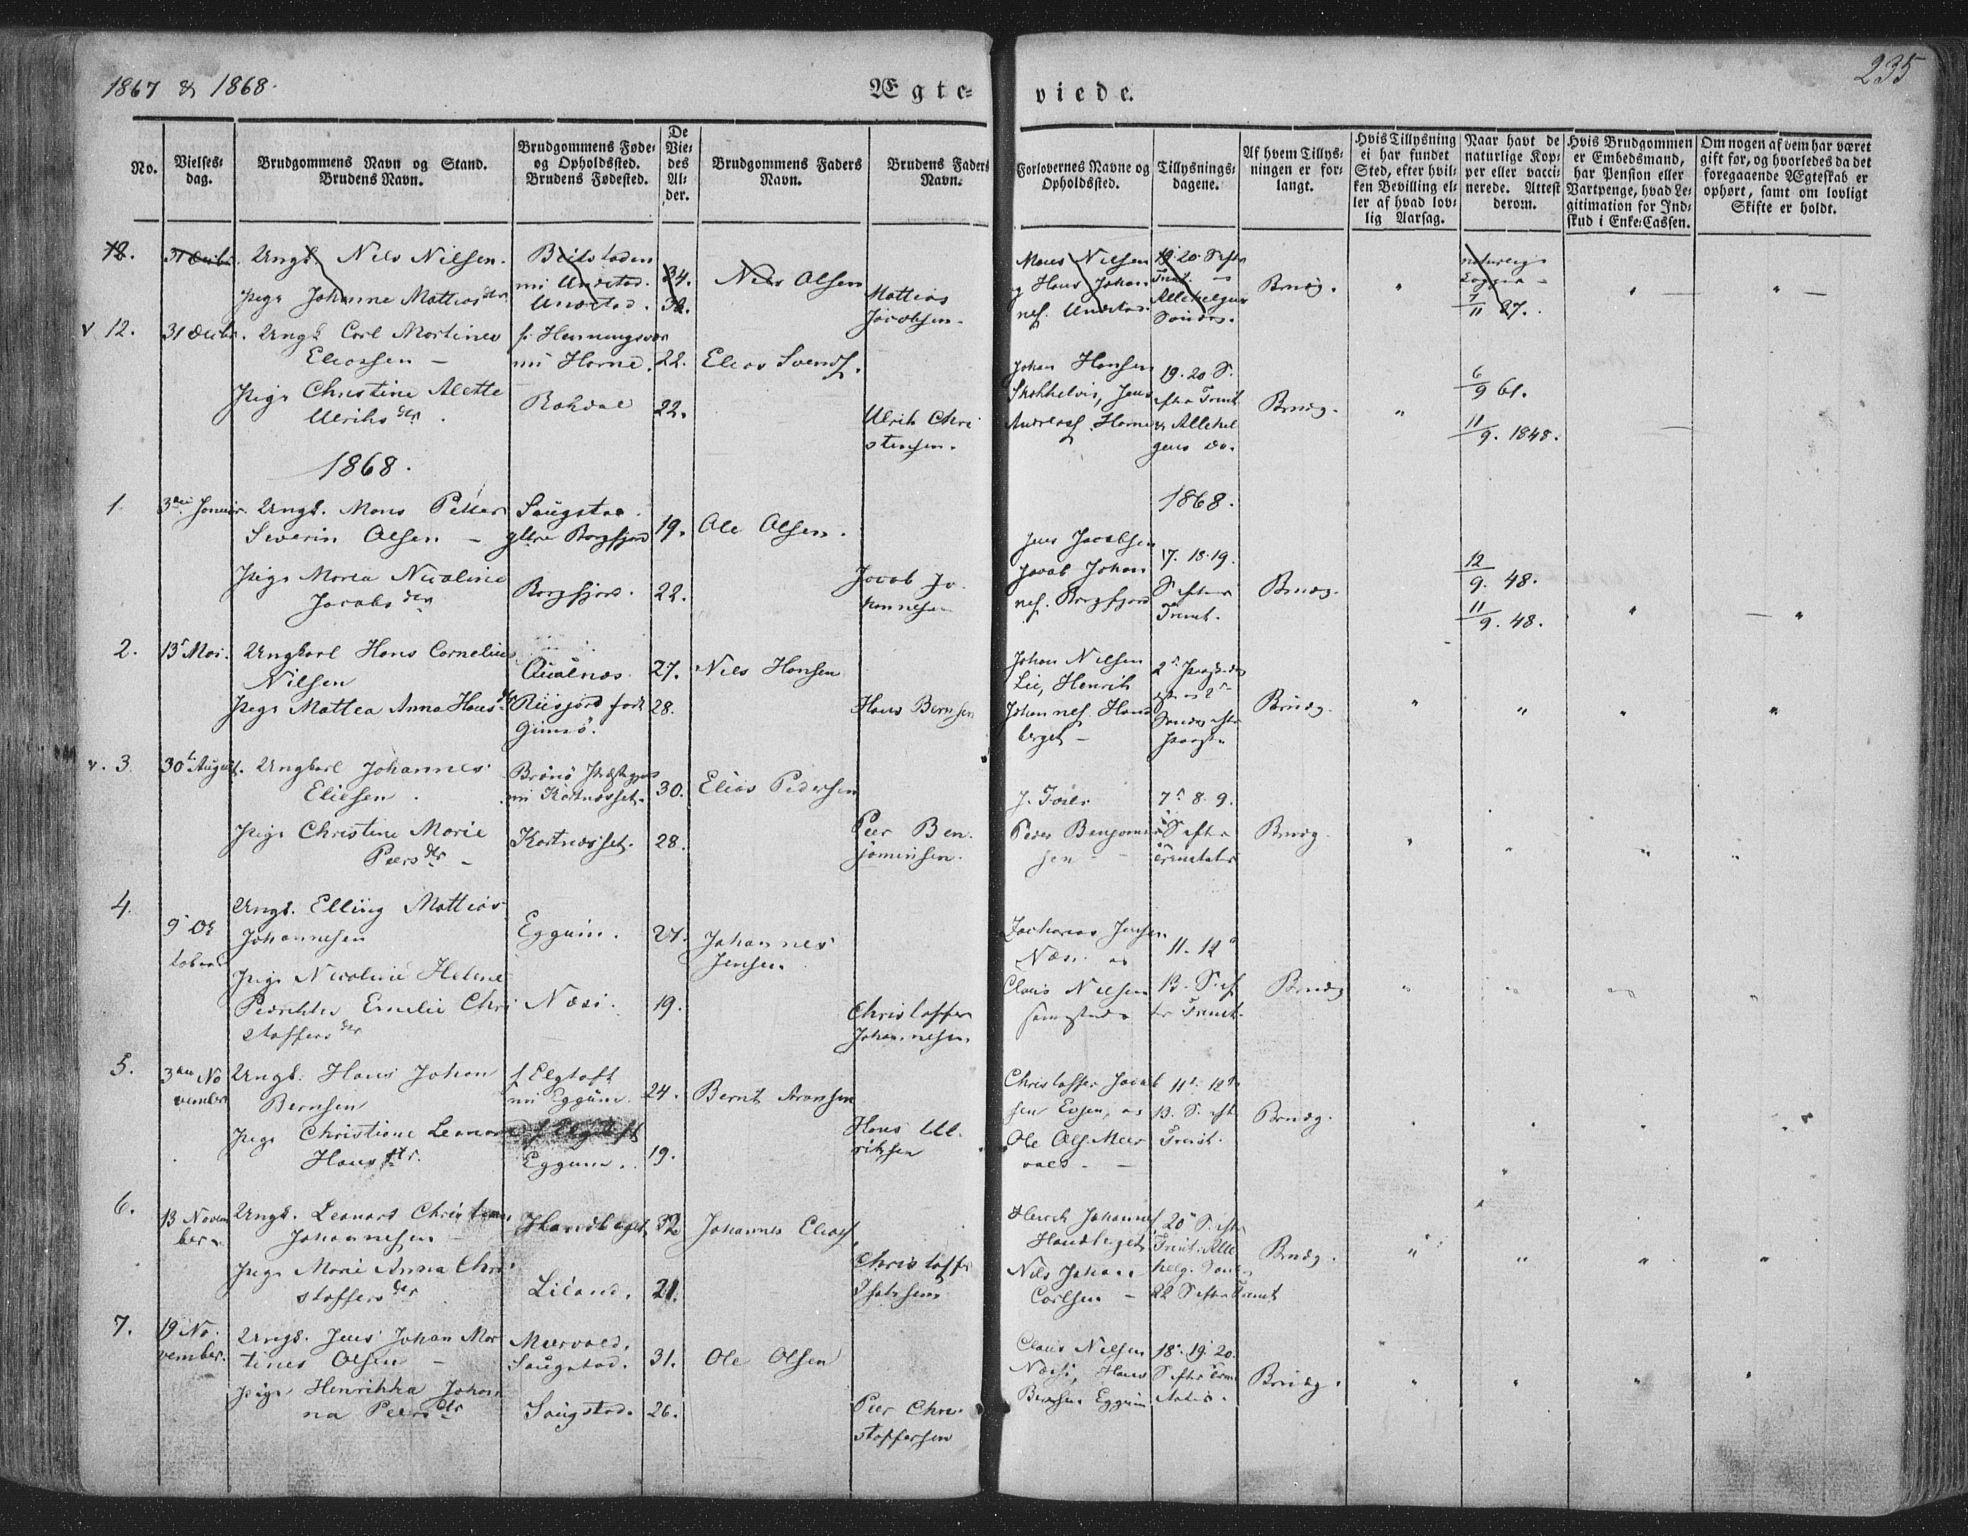 1867 & 1868.
Ægte-
viede.
235
No.
Vielses-
dag.
Brudgommens Navn og Stand.
Brudens Navn.
Brudgommens Føde-
og Opholdssted.
Brudens Fødested.
De
Vie-
des
Al-
der.
Brudgommens Faders
Navn.
Brudens Faders
Navn.
Forlovernes Navne og
Opholdssted.
Tillysnings-
dagene.
Af hvem Tillys-
ningen er for-
langt.
Hvis Tillysning
ei har fundet
Sted, efter hvil-
ken Bevilling el-
ler af hvad lov-
lig Aarsag.
Naar havt de
naturlige Kop-
per eller vacci-
nerede. Attest
derom.
Hvis Brudgommen
er Embedsmand,
har Pension eller
Vartpenge, hvad Le-
gitimation for Ind-
skud i Enke-Cassen.
Om nogen af dem har været
gift før, og hvorledes da det
foregaaende Ægteskab er
ophørt, samt om lovligt
Skifte er holdt.
12.
Ungk. Nils Nilsen.
Pige Johanne Mattias dtr
nu Unstad.
Unstad.
34.
Nils Olsen
Mattias
Jacobsen.
Mons Nilsen
og Hans Johan
nes. Unstad.
19. 20 S. eftr
Trint. og
Allehelgens
Søndag.
Brudg.
7/11 27.
v 12.
31 Decbr.
Ungk. Carl Martines
Eliassen -
Pige Christine Alette
Ulriks dtr.
f. Henningsvær
nu Horne.
22.
22.
Elias Svends.
Ulrik Chri
stensen.
Johan Hansen
Jens
Andreass. Horne
19. 20 S.
efter Trint.
& Allehel
gens do.
Brudg.
6/9 61.
11/9. 1848.
1868.
1868.
1.
3die Januar.
Ungk. Mons Petter
Severin Olsen -
Pige Maria Nicoline
Jacobs dtr
Saugstad.
Borgfjord
Borgfjord.
19.
22.
Ole Olsen.
Jacob Jo
hannesen
Jens Jacobsen
Jacob Johan
nes. Borgfjord
17. 18. 19.
S. efter
Trint.
Brudg.
12/9. 48.
11/9. 48.
2.
13 Mai.
Ungkarl Hans Cornelius
Nilsen
Pige Mattea Anna Hans dtr
Qualnæs.
Gimsø.
27.
28.
Nils Hansen
Hans Bernsen
Johan Nilsen
Lie, Henrik
Johannes. Hand
berget -
Brudg.
v. 3
30te August.
Ungkarl Johannes
Eliesen.
Pige Christine Marie
Peers dtr -
nu Kartnæsset.
Kartnæsset.
30.
28.
Elias Pedersen
Peer Ben
jaminsen.
Peder Benjamin
sen -
7de 8. 9.
S. efter
Trinitatis
Brudg.
4.
9de Oc
tober
Ungk. Elling Mattias
Johannesen
Pige Nicoline Helene
Emelie Chri
stoffers dtr
Eggum.
Næsi.
27.
19.
Johannes
Jensen.
Christoffer
Johannesen.
Zacharias Jensen
Næsi. og
Claus Nilsen
sammesteds
11. 12
13. S. ef
ter Trint.
Brudg
5.
3die No
vember
Ungk. Hans Johan
Bernsen
Pige Christiane Leonore
Hans dtr.
f. Elgtoft
nu Eggum.
Eggum.
24.
19.
Bernt Aronsen
Hans Ul
riksen
Christoffer Jacob
sen Eggum, og
Ole Ols. Meer
vold. -
11te 12te
13. S. eft.
Trint.
Brudg.
6.
13 Novem
ber.
Ungk. Leonart Christian
Johannesen -
Pige Marie Anna Chri
stoffers dtr
Handberget
Liland.
32
21.
Johannes Elias.
Christoffer
Isaksen
Henrik Johannes.
Handberget
Nils Johan
Carlsen -
20de S. eftr
Trint. Alle
helg. Sønd.
22 S. eftr Trint
Brudg.
7.
19 No
vember.
Ungk. Jens Johan Mar
tines Olsen -
Pige Henrikka Johan
na Peers dtr
Meervold.
Saugstad.
Saugstad.
31.
26.
Ole Olsen
Peer Chri
stoffersen
Claus Nilsen
Næsi, Hans
Bernsen Eggum
18de 19. 20.
S. efter Trini
tatis.
Brudg.